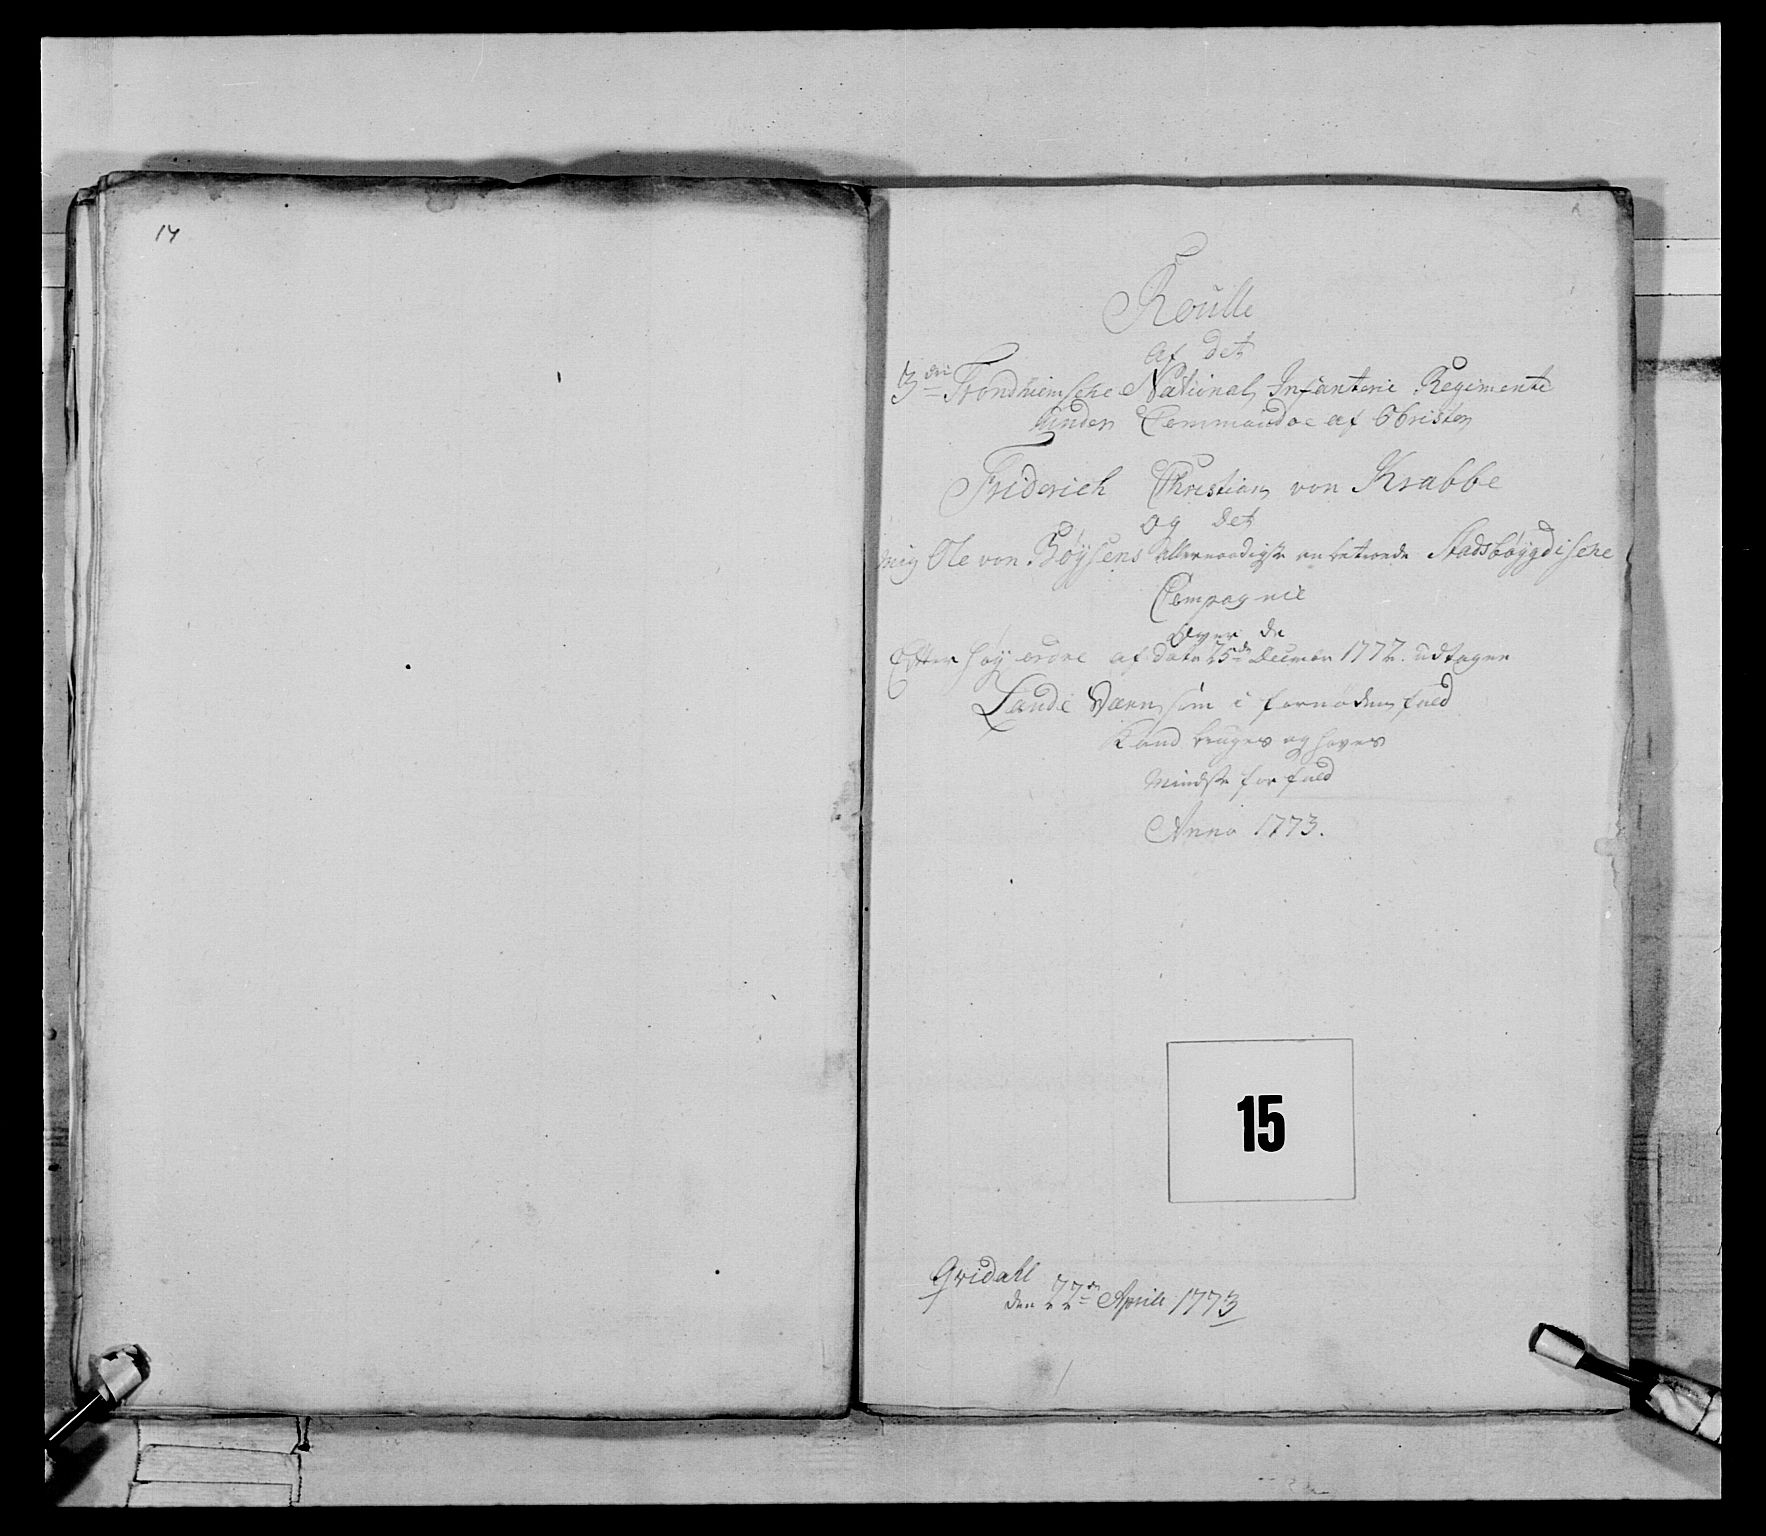 14
Roulle
af det
3die Trondhiemsche National Infanterie Regimente
under Commandoe af Obristen
Friderich Christian von Krabbe
og det
mig Ole von Bøysens allernaadigst anbetroede Stadsbøygdische
Compagnie
Over de
Efter høy ordre af dato 25de Decembr 1772. udtagne
Lande Værn som i fornøden fald
kand bruges og haves
Mindste for fald
Anno 1773.
15
Gridahl
den 22de Aprili 1773